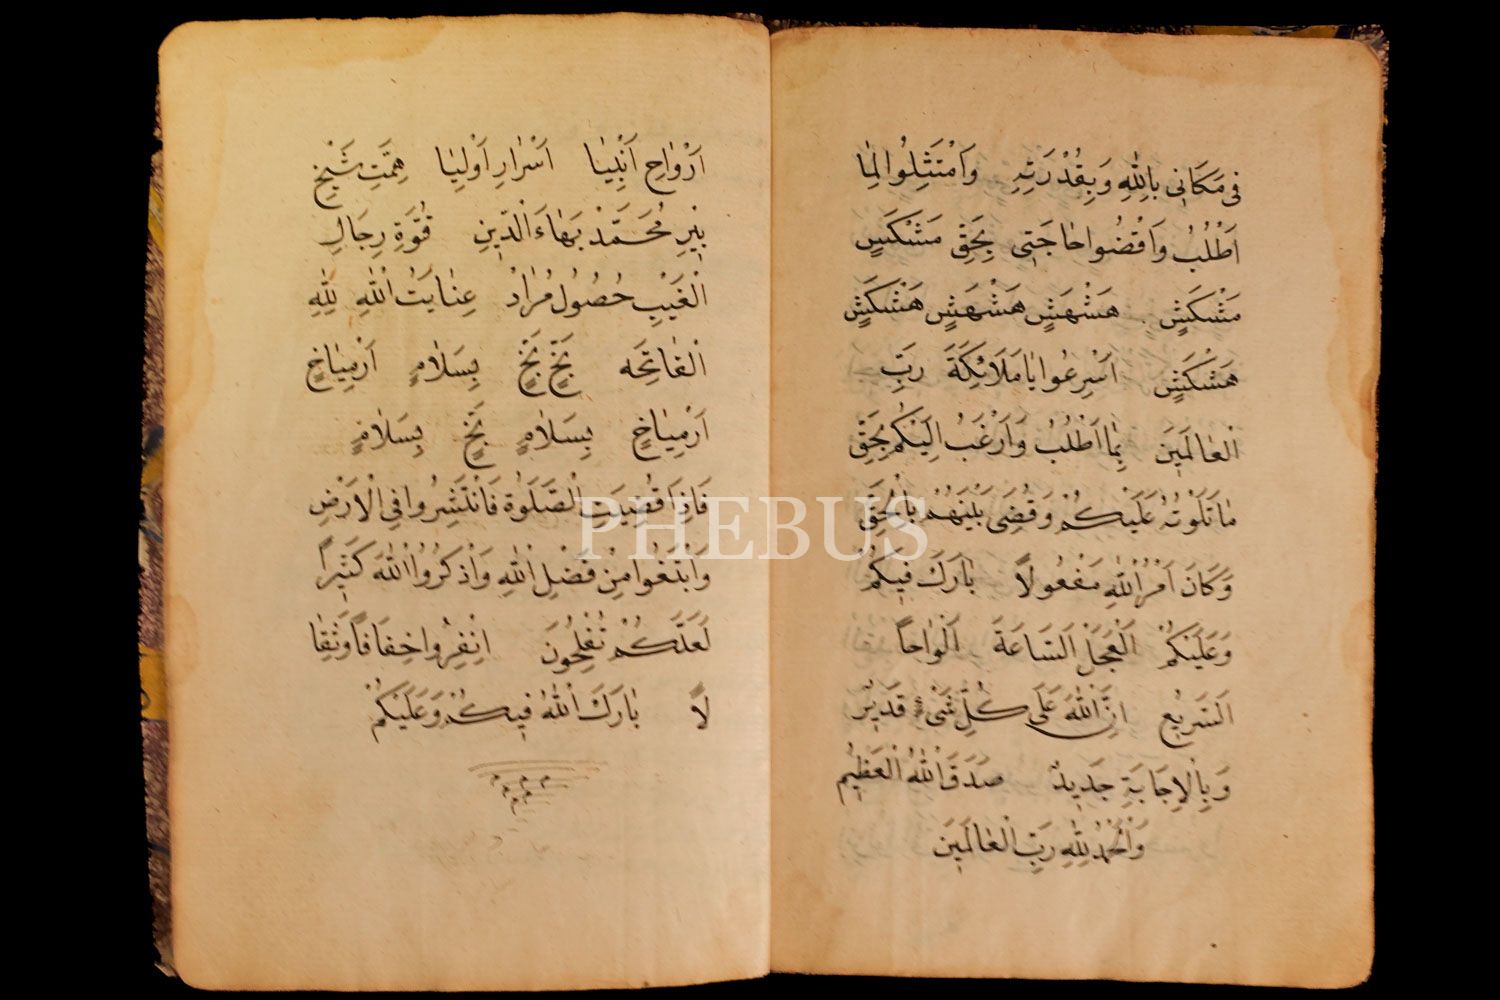 فِى مَكَانِى بِاللّٰهِ وَبِقُدْرَتِهِ وَامْتَثِلُوا لِمٰا
اَطْلُبُ وَاقْضُوا حٰاجَتِى بِحَقِّ مَشْكَشٍ
مَشْكَشٍ هَشْهَشٍ هَشْهَشٍ هَشْكَشٍ
هَشْكَشٍ اَسْرِعُوا يٰا مَلَائِكَةَ رَبِّ
الْعٰالَمِينَ بِمٰا اَطْلُبُ وَاَرْغَبُ اِلَيْكُمْ بِحَقِّ
مٰا تَلَوْتُهُ عَلَيْكُمْ وَقُضِىَ بَيْنَهُمْ بِالْحَقِّ
وَكَانَ اَمْرُ اللّٰهِ مَفْعُولاً بٰارَكَ فِيكُمْ
وَعَلَيْكُمْ الْعَجَلْ السَّاعَةَ اَلْوٰاحاً
السَّرِيعْ اِنَّ اللّٰهَ عَلَى كُلِّ شَىْءٍ قَدِيرٌ
وَبِالْاِجَابَةِ جَدِيدٌ صَدَقَ اللّٰهُ الْعَظِيمْ
وَالْحَمْدُ لِلّٰهِ رَبِّ الْعٰالَمِينَ
اَرْوٰاحِ اَنْبِيٰا اَسْرٰارِ اَوْلِيٰا هِمَّتِ شَيْخِ
پِيرِ مُحَمَّدْ بَهٰاءَ الدِّينِ قُوَّةِ رِجَالِ
الْغَيْبِ حُصُولُ مُرٰادْ عِنٰايَتُ اللّٰهِ لِلّٰهِ
الْفٰاتِحَه بَخٍّ بَخٍّ بِسَلاٰمٍ اَرْمِيٰاخٍ
اَرْمِيٰاخٍ بِسَلاٰمٍ بَخٍّ بِسَلاٰمٍ
فَاِذَا قُضِيَتِ الصَّلَوٰةُ فَانْتَشِرُوا فِى الْاَرْضِ
وَابْتَغُوا مِنْ فَضْلِ اللّٰهِ وَاذْكُرُوا اللّٰهَ كَثِيراً
لَعَلَّكُمْ تُفْلِحُونَ اِنْفِرُوا خِفَافًا وَثِقٰا
لاً بٰارَكَ اللّٰهُ فِيكُمْ وَعَلَيْكُمْ
PHEBUS